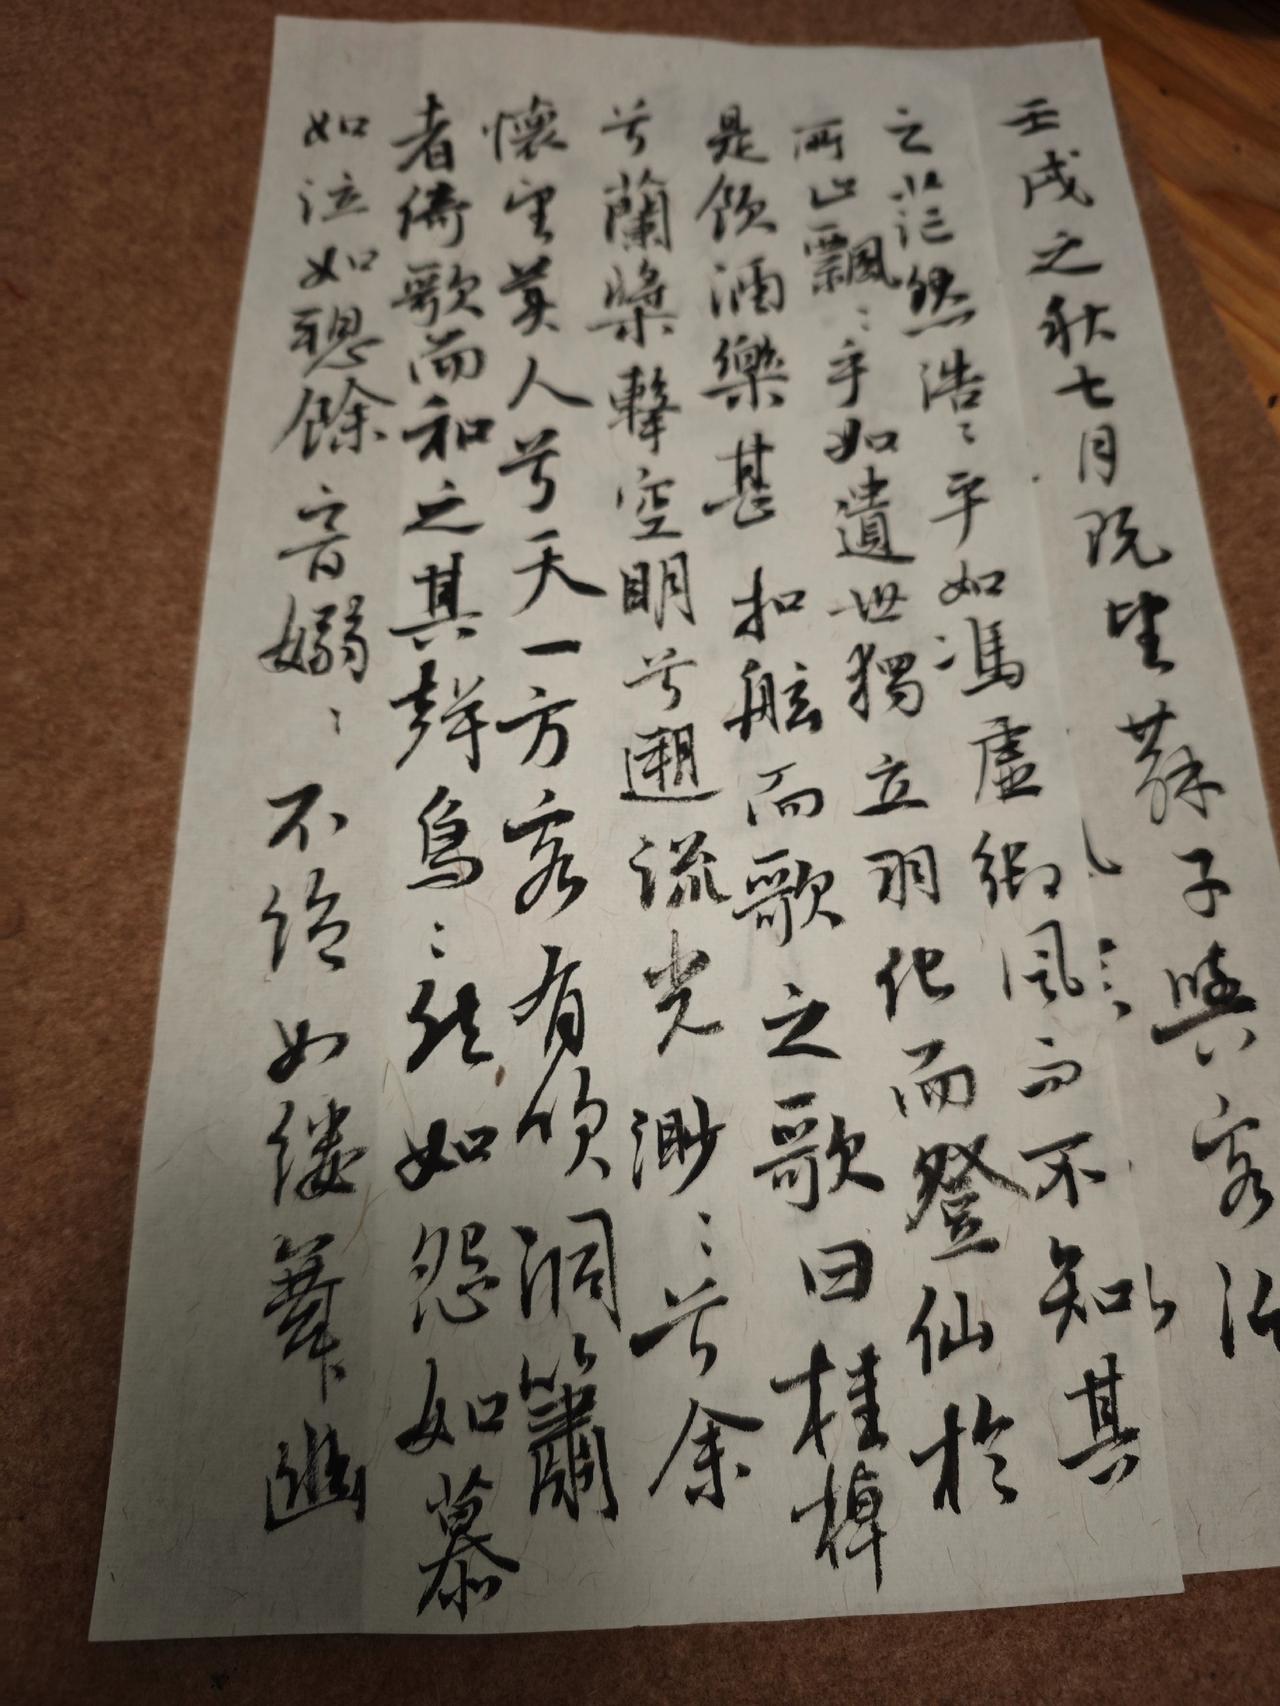 壬戌之秋七月既望蘇子與客
之茫然浩〻乎如馮虛御風而不知其
所止飄〻乎如遺世獨立羽化而登仙於
是飲酒樂甚扣舷而歌之歌曰桂棹
兮蘭槳擊空明兮遡流光渺〻兮余
懷望美人兮天一方客有吹洞簫
者倚歌而和之其聲嗚〻然如怨如慕
如泣如愬餘音嫋〻不絕如縷舞幽